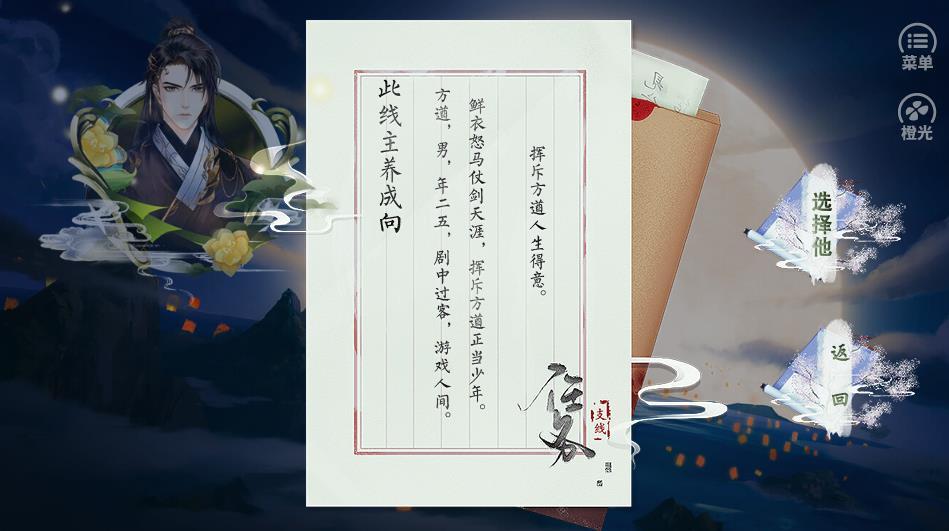 挥斥方道人生得意。
鲜衣怒马仗剑天涯，挥斥方道正当少年。
方道，男，年二五，剧中过客，游戏人间。
此线主养成向
支线
菜单
橙光
选择他
返回